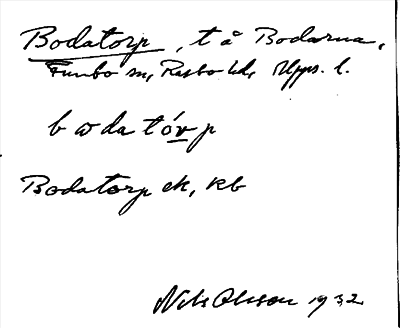 Bodatorp, t å Bodarna,
Funbo sn, Rasbo hd, Upps. l.
b ω da tó̱r p
Bodatorp ek, kb
Nils Olsson 1932